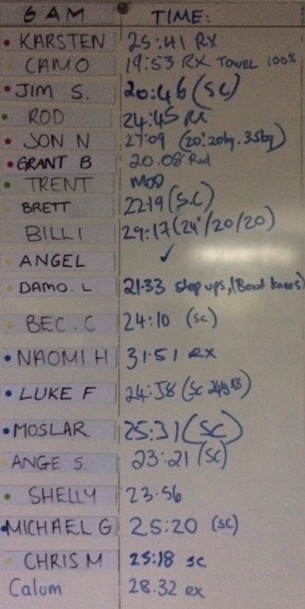 6 AM TIME:
KARSTEN 25:41 RX
CAMO 19:53 RX TOWEL 100%
JIM S. 20:46 (SC)
ROD 24:45 RX
JON N 27:09 (20" 20kg. 35kg)
GRANT B 20.08 Rxd
TRENT MOD
BRETT 22:19 (S.C)
BILLI 29:17 (24"/20/20)
ANGEL ✓
DAMO. L 21:33 step ups, (Bent knees)
BEC. C 24:10 (sc)
NAOMI H 31:51 RX
LUKE F 24:58 (Sc 24kg KB)
MOSLAR 25:31 (SC)
ANGE S. 23:21 (SC)
SHELLY 23:56
MICHAEL G 25:20 (sc)
CHRIS M 25:18 sc
Calum 28.32 rx